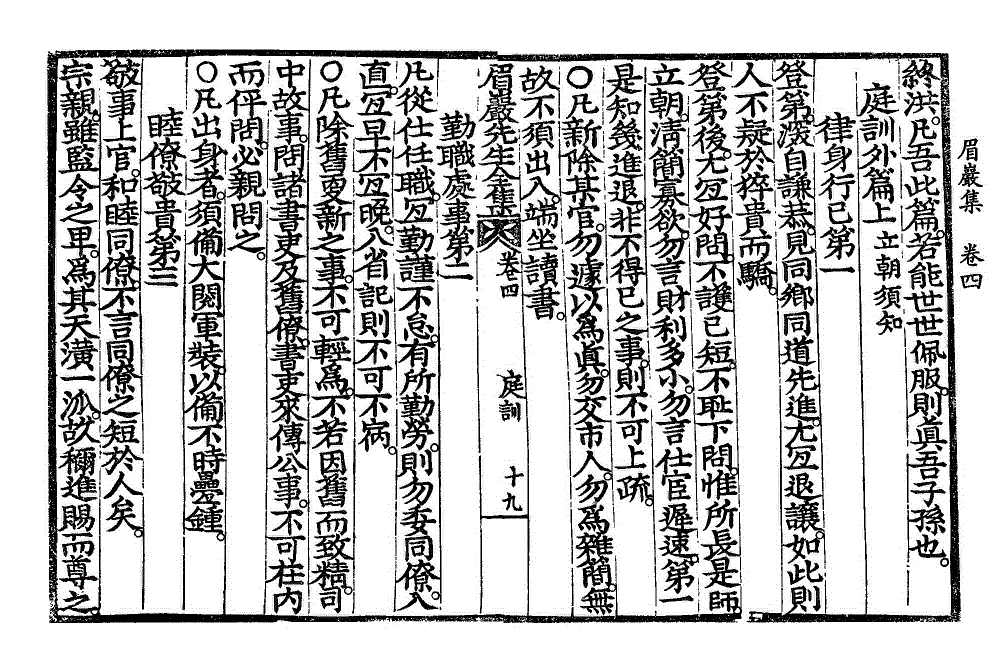 眉巖集　卷四
終洪。凡吾此篇。若能世世佩服。則眞吾子孫也。
庭訓外篇上 立朝須知
律身行己第一
登第。深自謙恭。見同鄉同道先進。尤宜退讓。如此則
人不疑於猝貴而驕。
登第後。尤宜好問。不護己短。不恥下問。惟所長是師。
立朝。淸簡寡欲。勿言財利多小。勿言仕宦遲速。第一
是知幾進退。非不得已之事。則不可上疏。
○凡新除某官。勿遽以爲眞。勿交市人。勿爲雜簡。無
故不須出入。端坐讀書。
眉巖先生全集 卷四　庭訓　十九
勤職處事第二
凡從仕任職。宜勤謹不怠。有所勤勞。則勿委同僚。入
直。宜早不宜晚。八省記則不可不病。
○凡除舊更新之事。不可輕爲。不若因舊而致精。司
中故事。問諸書吏及舊僚。書吏來傳公事。不可在內
而伻問。必親問之。
○凡出身者。須備大閱軍裝。以備不時疊鍾。
睦僚敬貴第三
敬事上官。和睦同僚。不言同僚之短於人矣。
宗親。雖監令之卑。爲其天潢一派。故稱進賜而尊之。